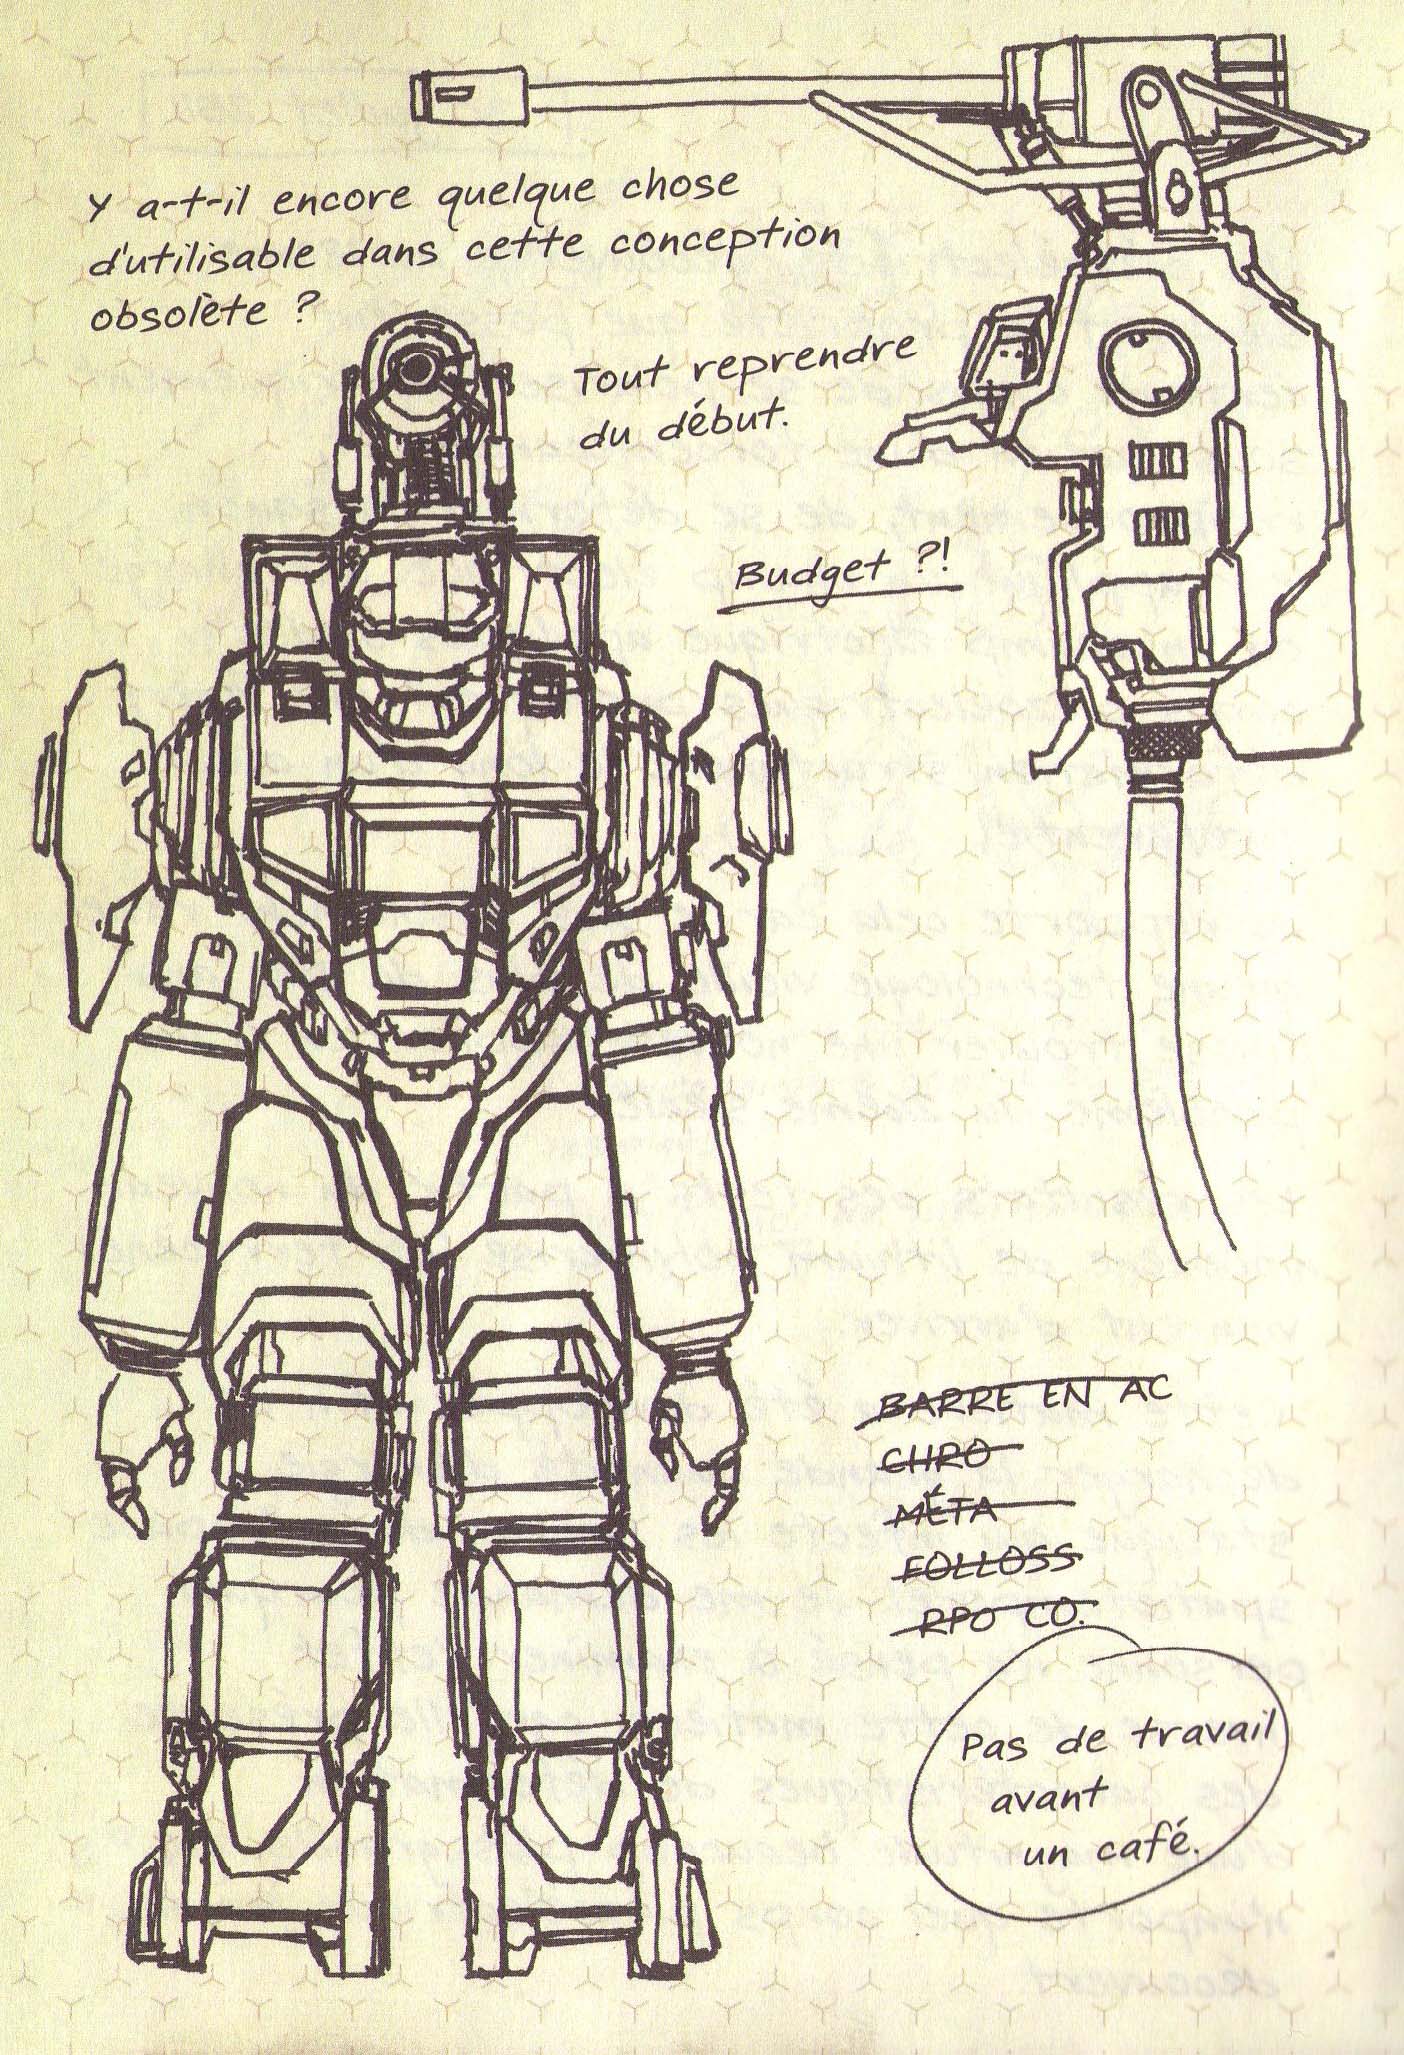 Y a-t-il encore quelque chose
d'utilisable dans cette conception
obsolète ?
Tout reprendre
du début.
Budget ?!
BARRE EN AC
CHRO
MÉTA
FOLLOSS
RPO CO.
Pas de travail
avant
un café.